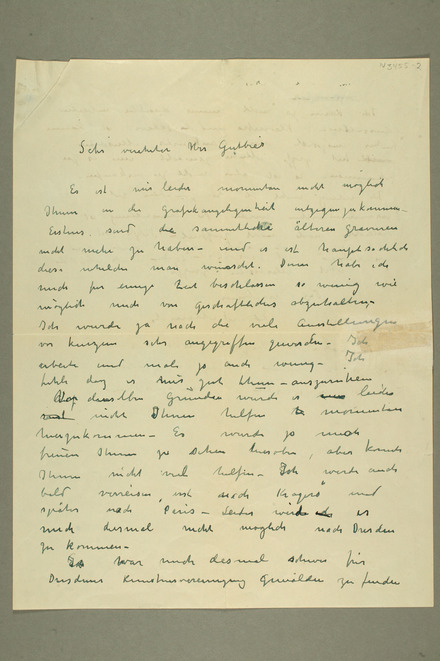 N 3455-2
Sehr verehrter Herr Gutbier
Es ist mir leider momentan nicht möglich
Ihnen in die Grafikangelegenheit entgegenzukommen.
Erstens sind die sammtliche älteren gravuren
nicht mehr zu haben – und es ist hauptsächlich
diese welche man wünscht. Dann habe ich
mich für einige Zeit beschlossen so wenig wie
möglich mich von Geschäftliches abzuhalten –
Ich wurde ja nach die viele Ausstellungen
vor kurzem sehr angegriffen geworden – Ich
arbeite und male ja auch wenig – Ich
es gut
denselben Gründen wurde es leider
nicht Ihnen helfen momentan
herzukommen – Es wurde ja mich
freuen Ihnen zu sehen hier oben, aber kann
Ihnen nicht viel helfen – Ich werde auch
bald verreisen, erst nach Kragerø und
später nach Paris – Leider wird es
mich diesmal nicht möglich nach Dresden
zu kommen –
Es war mich diesmal schwer für
Dresdner Kunstnervereinigung Gemälden zu finden